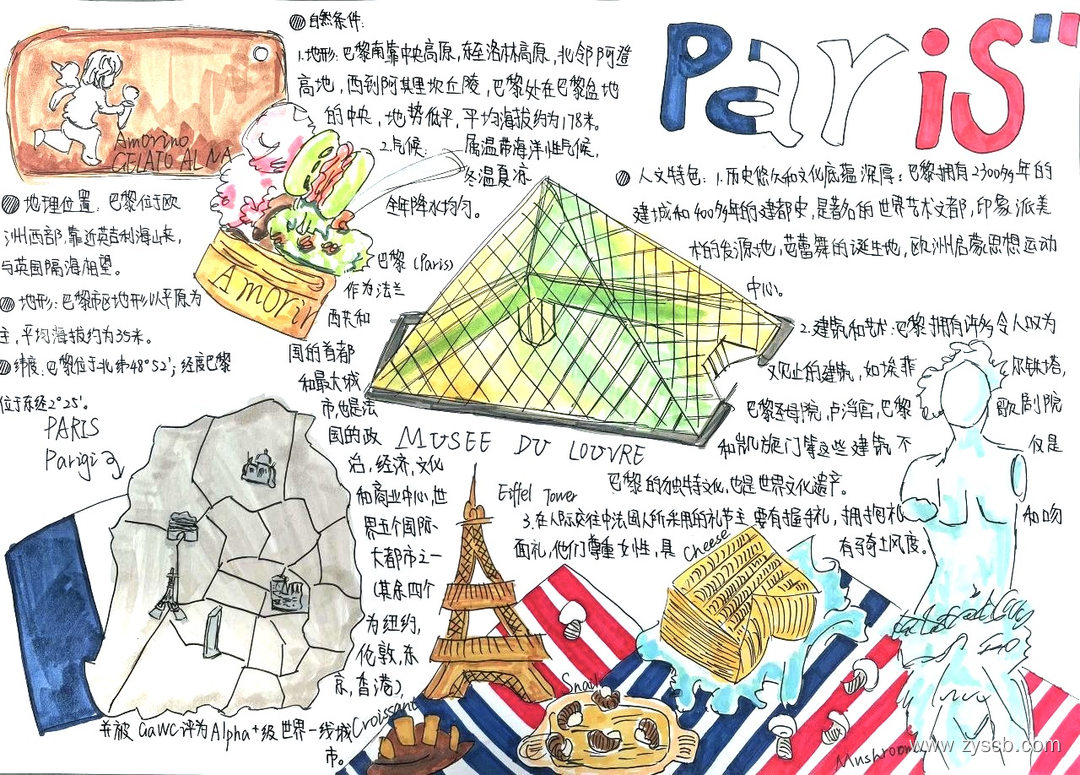 Paris
自然条件:
1.地形:巴黎南靠中央高原,东至洛林高原,北邻阿登
高地,西到阿莫里坎丘陵,巴黎处在巴黎盆地
的中央,地势低平,平均海拔约为178米。
2.气候: 属温带海洋性气候,
冬温夏凉
全年降水均匀。
Amorino
GELATO AL NA
Amorin
地理位置:巴黎位于欧
洲西部,靠近英吉利海峡,
与英国隔海相望。
地形:巴黎市区地形以平原为
主,平均海拔约为35米。
纬度:巴黎位于北纬48°52′;经度巴黎
位于东经2°25′。
PARIS
Parigi
巴黎(Paris)
作为法兰
西共和
国的首都
和最大城
市,也是法
国的政
治,经济,文化
和商业中心,世
界五个国际
大都市之一
(其余四个
为纽约,
伦敦,东
京,香港),
并被GaWC评为Alpha+级世界一线城
市。
MUSEE DU LOUVRE
Eiffel Tower
人文特色:1.历史悠久和文化底蕴深厚:巴黎拥有2300多年的
建城和400多年的建都史,是著名的世界艺术文都,印象派美
术的发源地,芭蕾舞的诞生地,欧洲启蒙思想运动
中心。
2.建筑和艺术:巴黎拥有许多令人叹为
观止的建筑,如埃菲 尔铁塔,
巴黎圣母院,卢浮宫,巴黎 歌剧院
和凯旋门等这些建筑不 仅是
巴黎的独特文化,也是世界文化遗产。
3.在人际交往中法国人所采用的礼节主要有握手礼,拥抱礼 和吻
面礼,他们尊重女性,具 有骑士风度。
Cheese
Snail
Croissant
Mushroom
www.zyscb.com